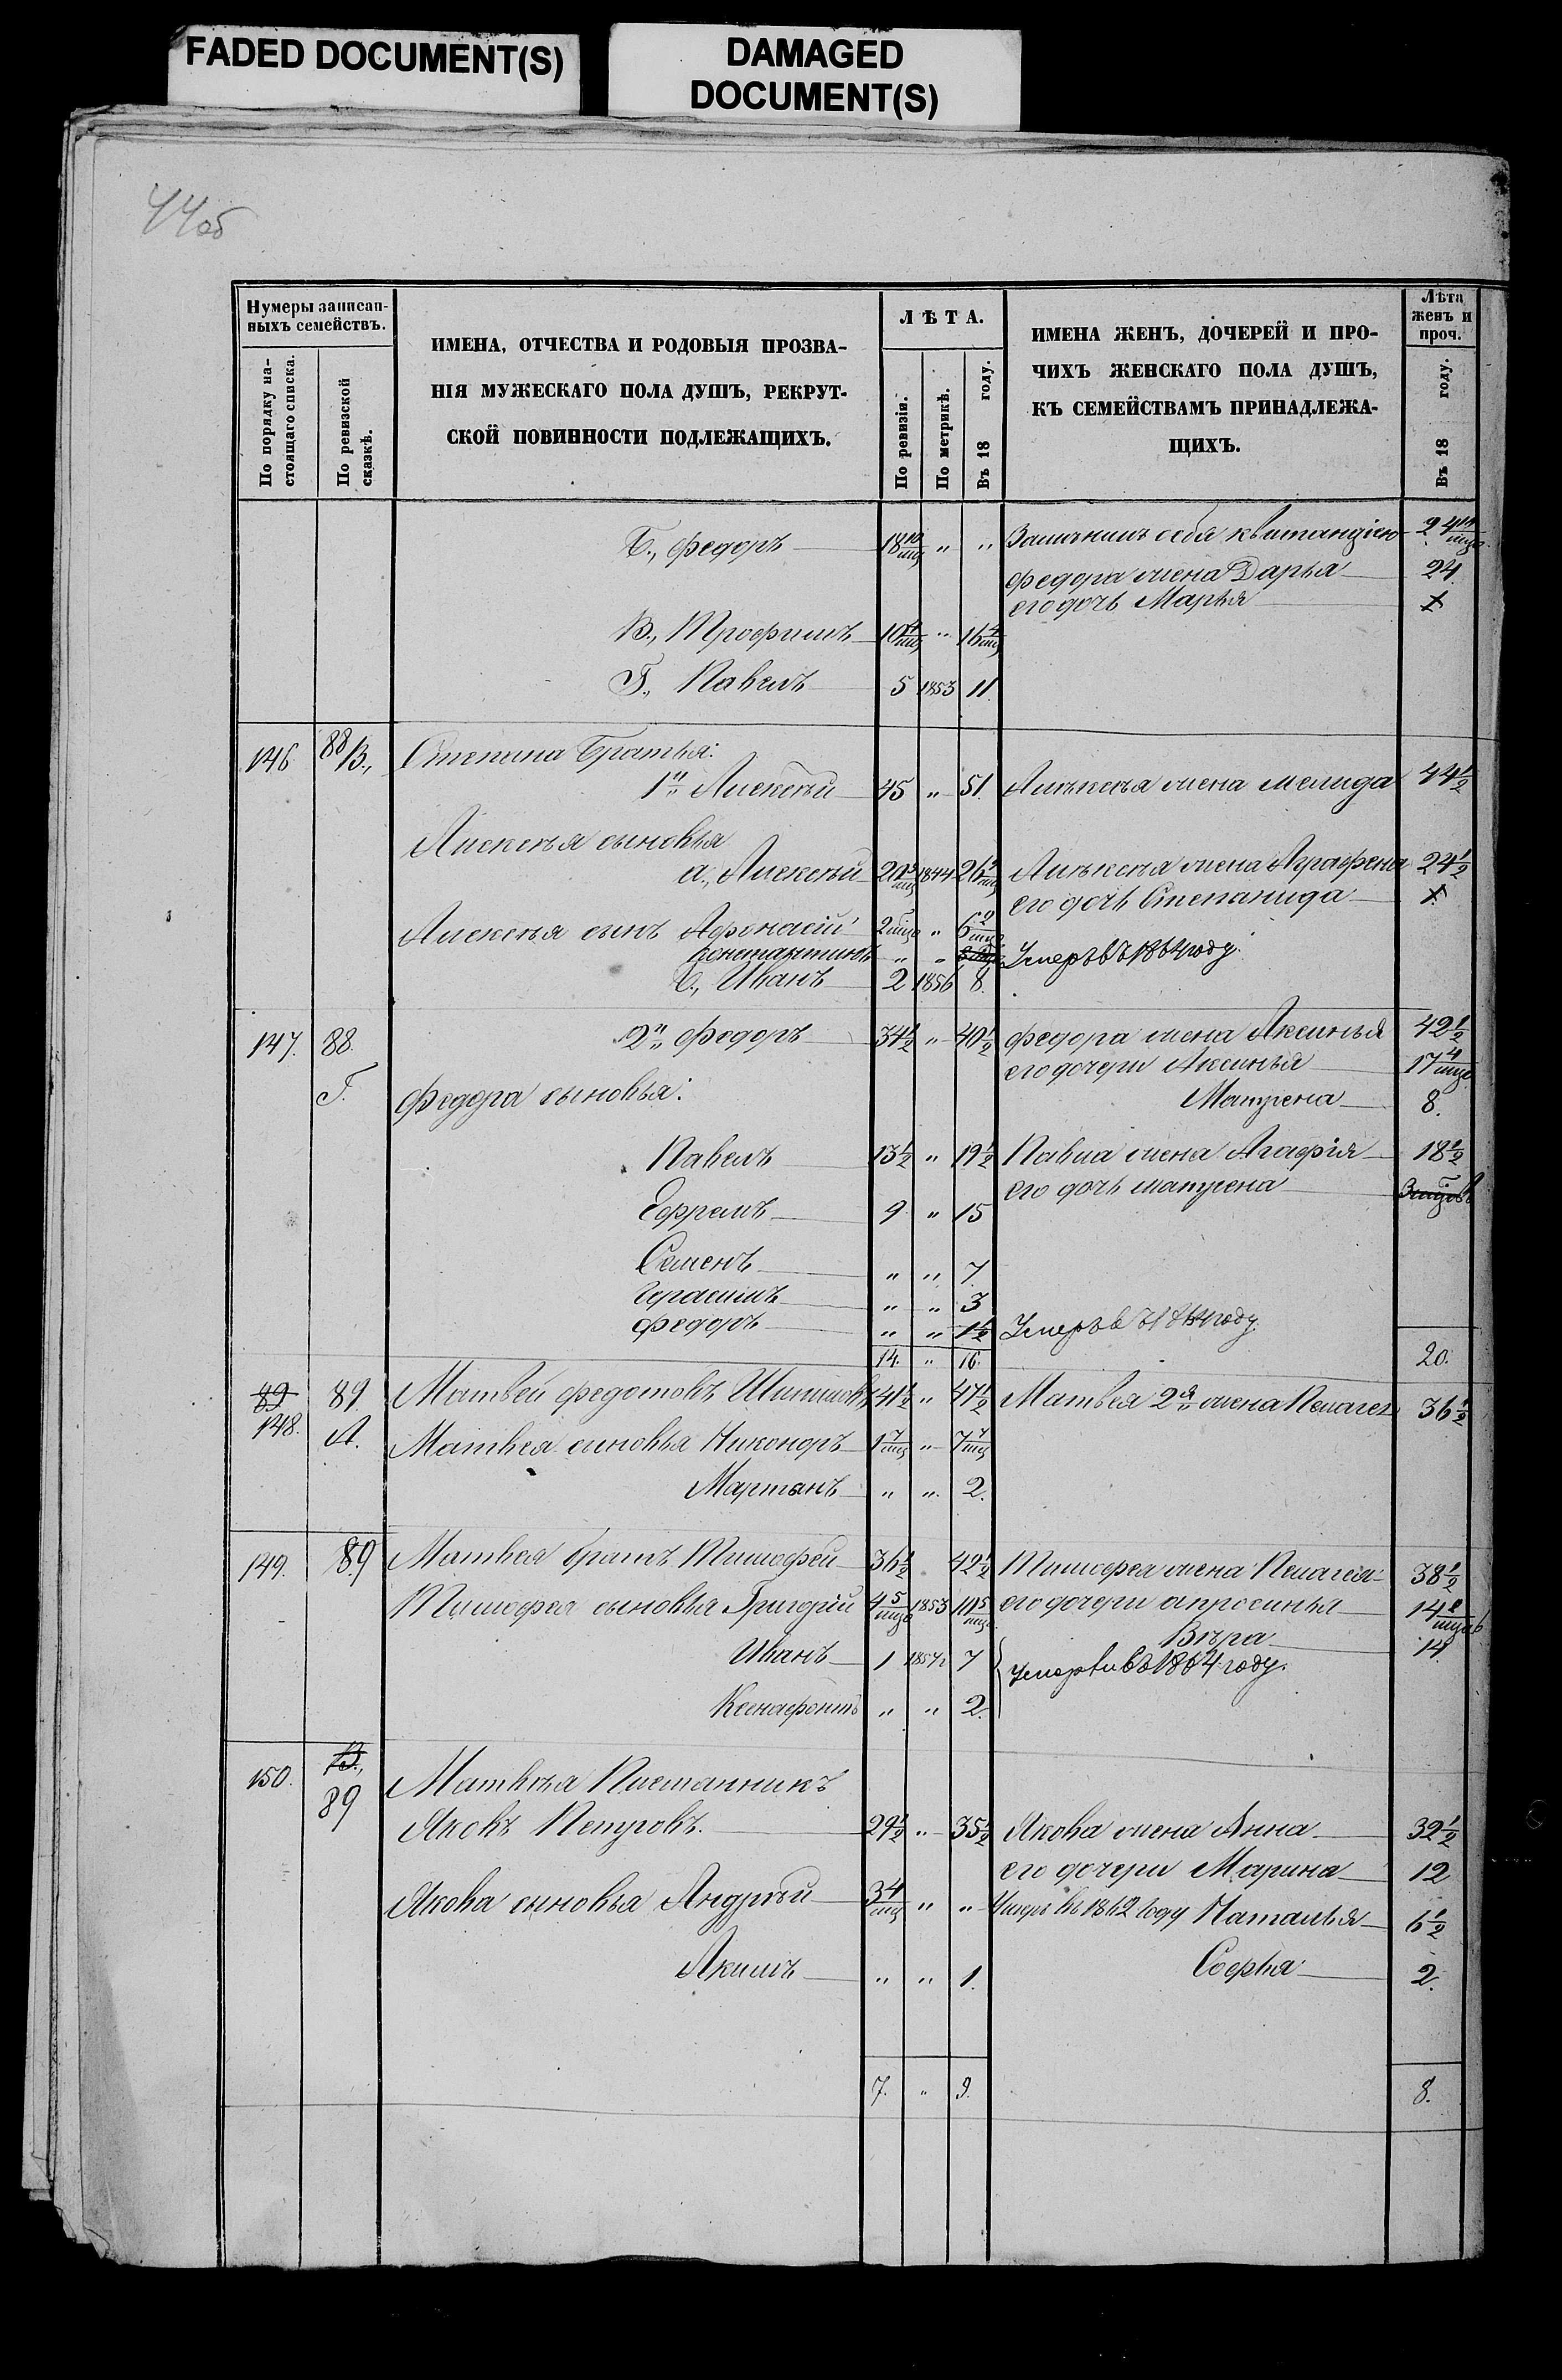 FADED DOCUMENT(S)
DAMAGED
DOCUMENT(S)
44 об
Нумеры записан-
ныхъ семействъ.
По порядку на-
стоящаго списка.
По ревизской
сказкѣ.
ИМЕНА, ОТЧЕСТВА И РОДОВЫЯ ПРОЗВА-
НІЯ МУЖЕСКАГО ПОЛА ДУШЪ, РЕКРУТ-
СКОЙ ПОВИННОСТИ ПОДЛЕЖАЩИХЪ.
ЛѢТА.
По ревизіи.
По метрикѣ.
Въ 18 году.
ИМЕНА ЖЕНЪ, ДОЧЕРЕЙ И ПРО-
ЧИХЪ ЖЕНСКАГО ПОЛА ДУШЪ,
КЪ СЕМЕЙСТВАМЪ ПРИНАДЛЕЖА-
ЩИХЪ.
Лѣта
женъ и
проч.
Въ 18 году.
Б., Федоръ 18 10/мц „ „ Замѣнилъ себя квитанціею 24
Федора жена Дарья 24
его дочь Марья
В., Трофимъ 10 4/мц „ 16 4/мц
Г., Павелъ 5 1853 11.
146 88 В., Степана братья:
1й Алексѣй 45 „ 51. Алѣксѣя жена мелида 44½
Алексѣя сыновья
а., Алексѣй 20 1844 26 Алѣксѣя жена Аграфена 24½
его дочь Степанида
Алексѣя сынъ Афонасій 2 „ 6
Константинъ „ „ Умеръ въ 1864 году.
б., Иванъ 2 1856 8.
147. 88. Г. 2й Федоръ 34½ „ 40½ Федора жена Аксинья 42½
его дочери Аксинья 17 4/мца
Федора сыновья: Матрена 8.
Павелъ 13½ „ 19½ Павла жена Агафія 18½
его дочь матрена
Ефремъ 9 „ 15
Семенъ „ „ 7.
Герасимъ „ „ 3
Федоръ „ „ 1½ Умеръ въ 1864 году.
14. „ 16. 20.
89 148. 89. А. Матвей Федотовъ 41½ „ 47½ Матвея 2я жена Пелагея 36½
Матвея сыновья Никоноръ 1 7/мц „ 7 7/мц
Мартанъ „ „ 2.
149. 89 Матвея братъ Тимофей 36½ 42½ Тимофея жена Пелагея 38½
Тимофея сыновья Григорій 4 5/мцв 1853 10 5/мца его дочери апросинья 14
Вѣра 14
Иванъ 1 1857 7 Умерли въ 1864 году.
Ксенафонтъ „ „ 2.
150. В., 89 Матвѣя Племанникъ
Яковъ Петровъ. 29½ „ 35½ Якова жена Анна 32½
его дочери Марина 12
Якова сыновья Андрѣй 3 4/мц „ „ Умеръ въ 1862 году Наталья 6½
Акимъ „ „ 1. Софья 2.
7. „ 9. 8.